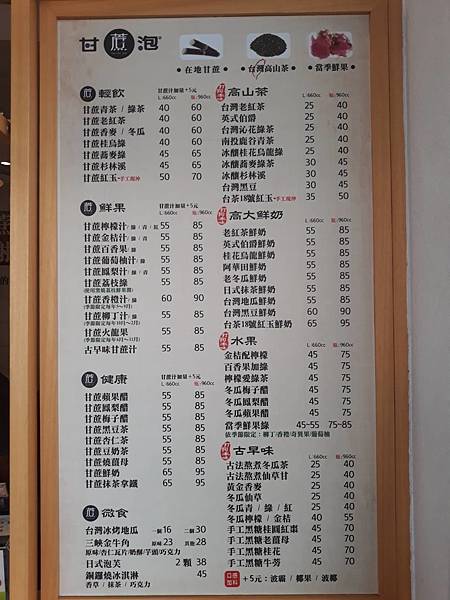 甘蔗泡®
•在地甘蔗 •台灣高山茶 •當季鮮果
蔗 輕飲 甘蔗汁加量+5元 L/660cc 瓶/960cc
甘蔗青茶 / 綠茶 40 60
甘蔗老紅茶 40 60
甘蔗香麥 / 冬瓜 40 60
甘蔗桂烏綠 40 60
甘蔗蕎麥綠 45 65
甘蔗杉林溪 45 65
甘蔗紅玉•手工現沖 50 70
蔗 鮮果 甘蔗汁加量+5元 L/660cc 瓶/960cc
甘蔗檸檬汁/ 綠 / 青 / 紅 55 85
甘蔗金桔汁/ 綠 / 青 55 85
甘蔗百香果/ 綠 55 85
甘蔗葡萄柚汁/ 綠 55 85
甘蔗鳳梨汁/ 綠 / 青 55 85
甘蔗荔枝綠 55 85
甘蔗香橙汁/ 綠 60 90
甘蔗柳丁汁/ 綠 55 85
甘蔗火龍果 55 85
古早味甘蔗汁 55 85
蔗 健康 甘蔗汁加量+5元 L/660cc 瓶/960cc
甘蔗蘋果醋 55 85
甘蔗鳳梨醋 55 85
甘蔗梅子醋 55 85
甘蔗黑豆茶 55 85
甘蔗杏仁茶 55 85
甘蔗豆奶茶 55 85
甘蔗燒薑母 55 85
甘蔗鮮奶 65 95
甘蔗抹茶拿鐵 65 95
蔗 微食
台灣冰烤地瓜 一個16 二個30
三峽金牛角 原味23 其他28
原味/杏仁瓦片/奶酥/芋頭/巧克力
日式泡芙 2顆 38
銅鑼燒冰淇淋 45
香草 / 抹茶 / 巧克力
高山茶 L/660cc 瓶/960cc
台灣老紅茶 25 40
英式伯爵 25 40
台灣沁花綠茶 25 40
南投鹿谷青茶 25 40
冰釀桂花烏龍綠 25 40
冰釀蕎麥綠茶 30 45
冰釀杉林溪 30 45
台灣黑豆 30 45
台茶18號紅玉•手工現沖 35 50
高大鮮奶 L/660cc 瓶/960cc
老紅茶鮮奶 55 85
英式伯爵鮮奶 55 85
桂花烏龍鮮奶 55 85
阿華田鮮奶 55 85
老冬瓜鮮奶 55 85
日式抹茶鮮奶 55 85
台灣地瓜鮮奶 55 85
台灣黑豆鮮奶 60 90
台茶18號紅玉鮮奶 65 95
水果 L/660cc 瓶/960cc
金桔配檸檬 45 75
百香果加綠 45 75
檸檬愛綠茶 45 75
冬瓜梅子醋 45 75
冬瓜鳳梨醋 45 75
冬瓜蘋果醋 45 75
當季鮮果綠 45~55 75~85
依季節限定：柳丁/香橙/奇異果/葡萄柚
古早味 L/660cc 瓶/960cc
古法熬煮冬瓜茶 25 40
古法熬煮仙草甘 25 40
黃金香麥 25 40
冬瓜仙草 25 40
冬瓜青 / 綠 / 紅 25 40
冬瓜檸檬 / 金桔 40 55
手工黑糖桂圓紅棗 45 70
手工黑糖老薑母 45 70
手工黑糖桂花 45 70
手工黑糖牛蒡 45 70
口感加料 +5元：波霸 / 椰果 / 波椰